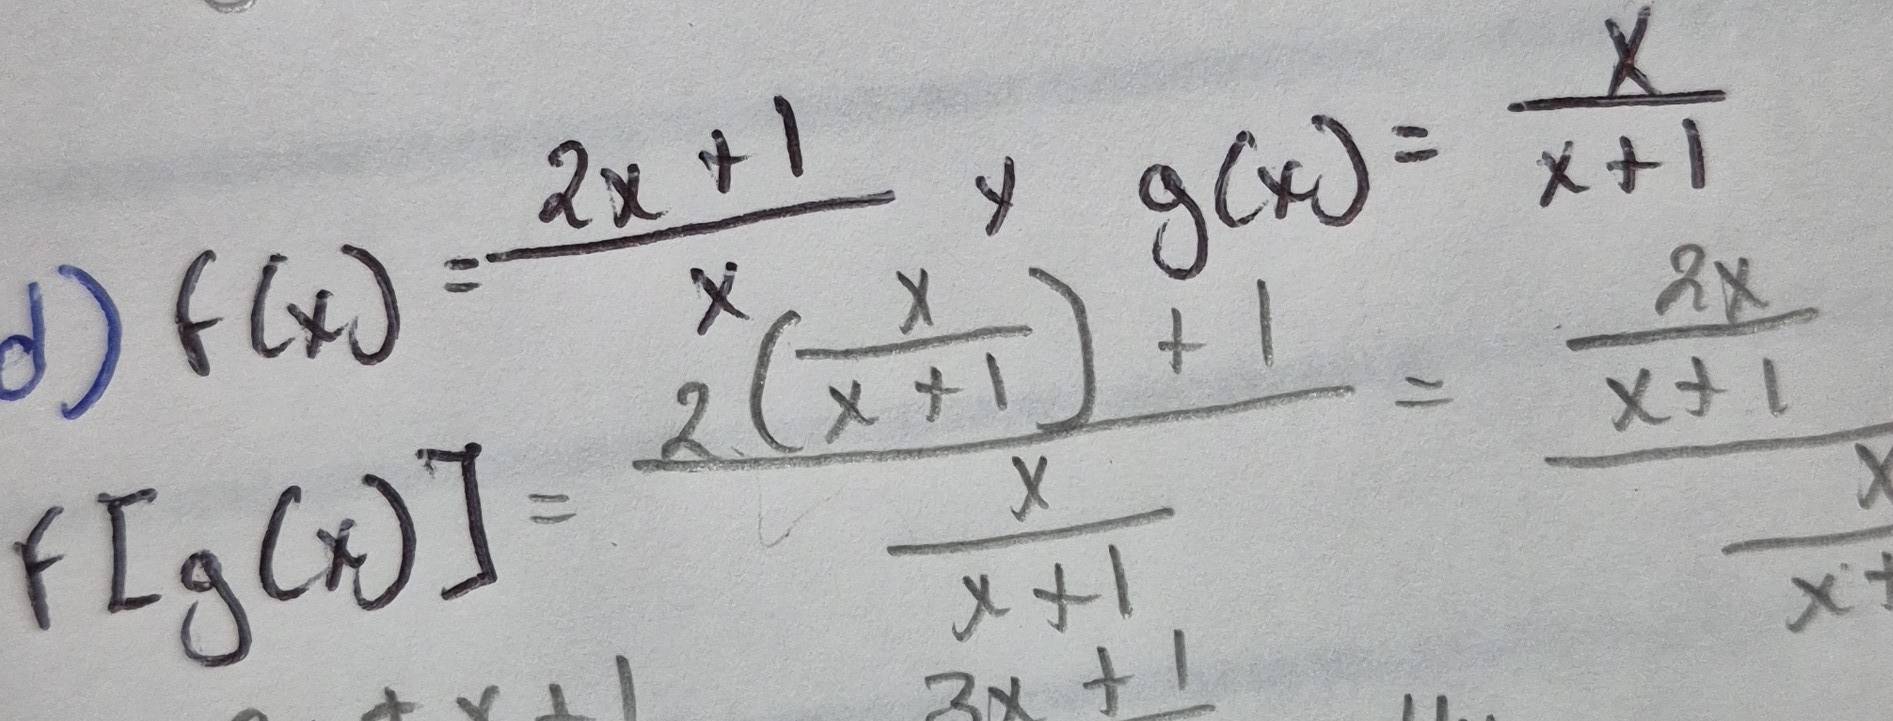 d) f(x) = (2x + 1)/x y g(x) = x/(x + 1)
f[g(x)] = (2(x/(x + 1)) + 1)/(x/(x + 1)) = (2x/(x + 1)
+ x + 1 3x + 1